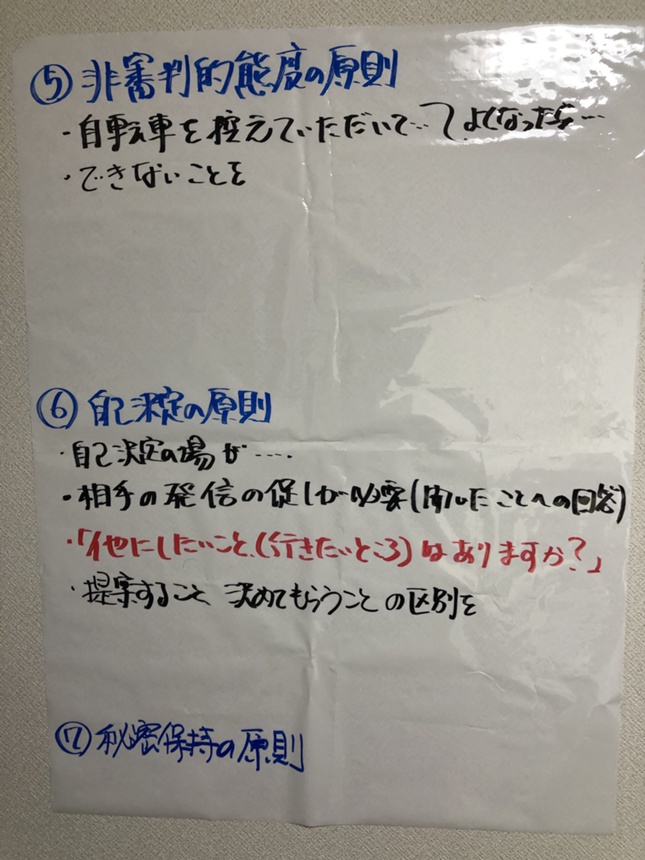 ⑤ 非審判的態度の原則
・自転車を控えていただいて…てよくなったら…
・できないことを
⑥ 自己決定の原則
・自己決定の場が….
・相手の発信の促しが必要(聞いたことへの回答)
・「他にしたいこと(行きたいところ)はありますか?」
・提案すること 決めてもらうことの区別を
⑦ 秘密保持の原則